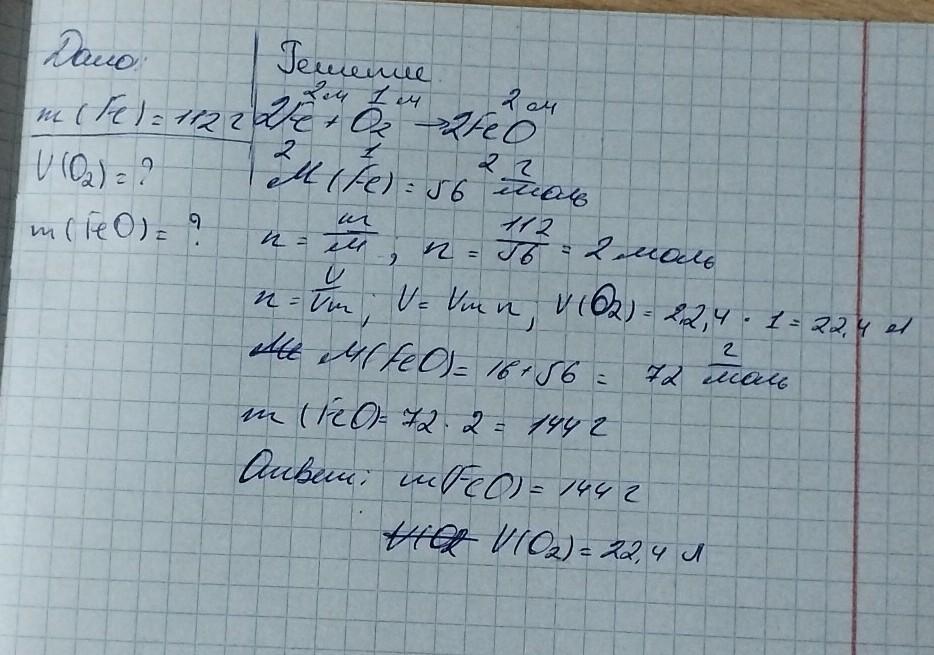 Дано:
m(Fe) = 112 г
V(O₂) = ?
m(FeO) = ?
Решение
2м 1м 2м
2Fe + O₂ → 2FeO
2 1 2
M(Fe) = 56 г/моль
n = m/M ; n = 112/56 = 2 моль
n = V/Vm ; V = Vm n ; V(O₂) = 22,4 · 1 = 22,4 л
M(FeO) = 16 + 56 = 72 г/моль
m(FeO = 72 · 2 = 144 г
Ответ: m(FeO) = 144 г
V(O₂ V(O₂) = 22,4 л